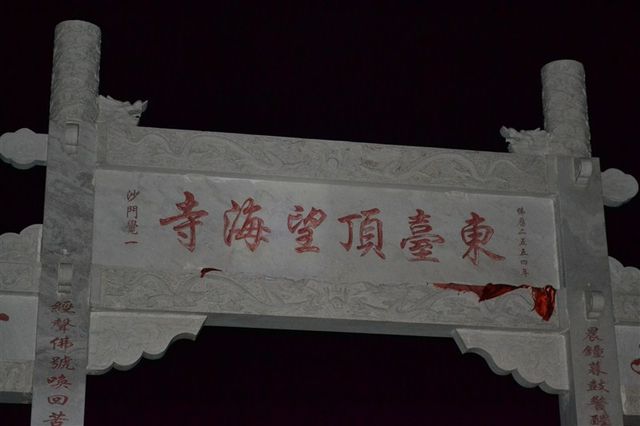 佛曆二五五四年
東臺頂望海寺
沙門覺一
晨鐘暮鼓警醒
經聲佛號喚回苦